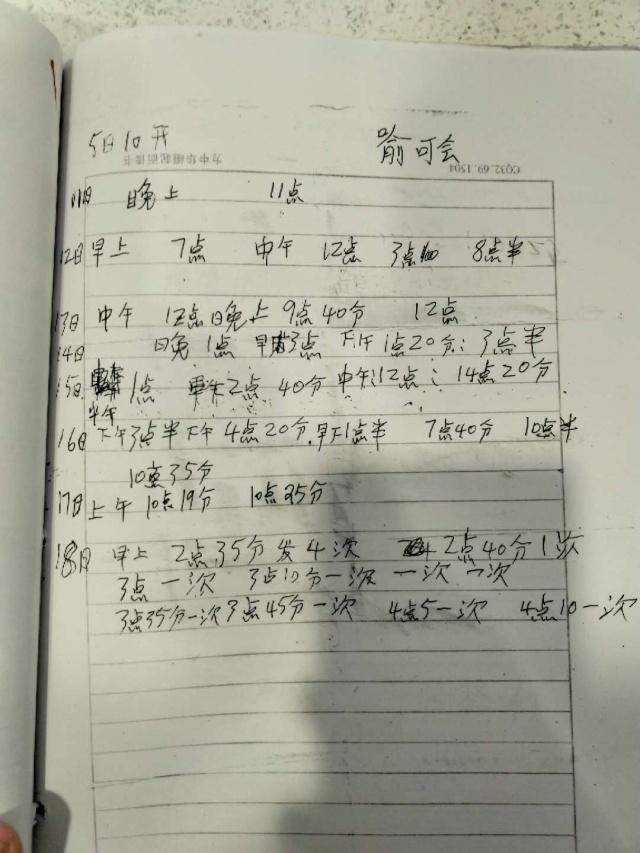 5日10开 喻可会
为中华崛起而读书 CQ32.69.1504
11日 晚上 11点
12日早上 7点 中午 12点 3点 8点半
13日 中午 12点晚上 9点40分 12点
14日 晚1点 早 3点 下午1点20分: 3点半
15日 1点 2点 40分 中午:12点: 14点20分
半午
16日 下午3点半下午 4点20分.早下1点半 7点40分 10点半
10点35分
17日上午 10点19分 10点35分
18日 早上 2点35分发4次 2点40分1次
3点一次 3点10分一次 一次 一次
3点35分一次3点45分一次 4点5一次 4点10一次